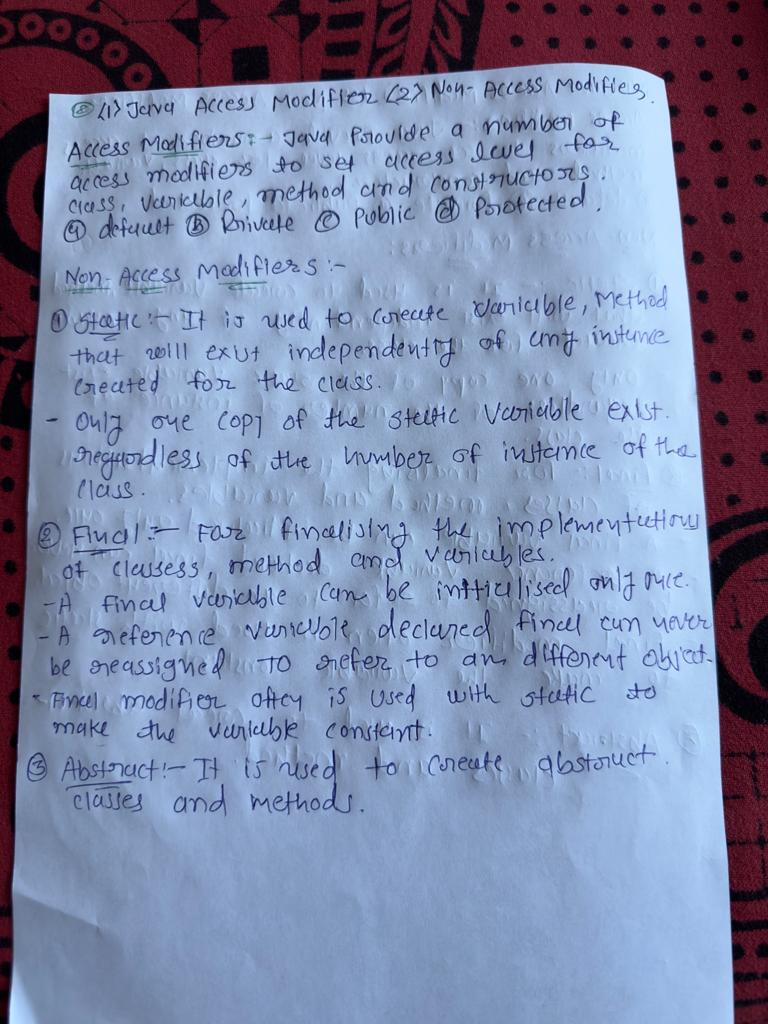 (1) Java Access Modifier (2) Non-Access Modifier.
Access Modifiers:- Java Provide a number of
access modifiers to set access level for
class, variable, method and constructors.
ⓐ default ⓑ Private ⓒ Public ⓓ Protected.
Non-Access Modifiers:-
① Static:- It is used to create variable, Method
that will exist independently of any instance
created for the class.
- Only one copy of the static variable exist.
regardless of the number of instance of the
class.
② Final:- For finalising the implementations
of classess, method and variables.
- A final variable can be initialised only once.
- A reference variable declared final can never
be reassigned to refer to an different object.
- Final modifier often is used with static to
make the variable constant.
③ Abstract:- It is used to create abstract
classes and methods.